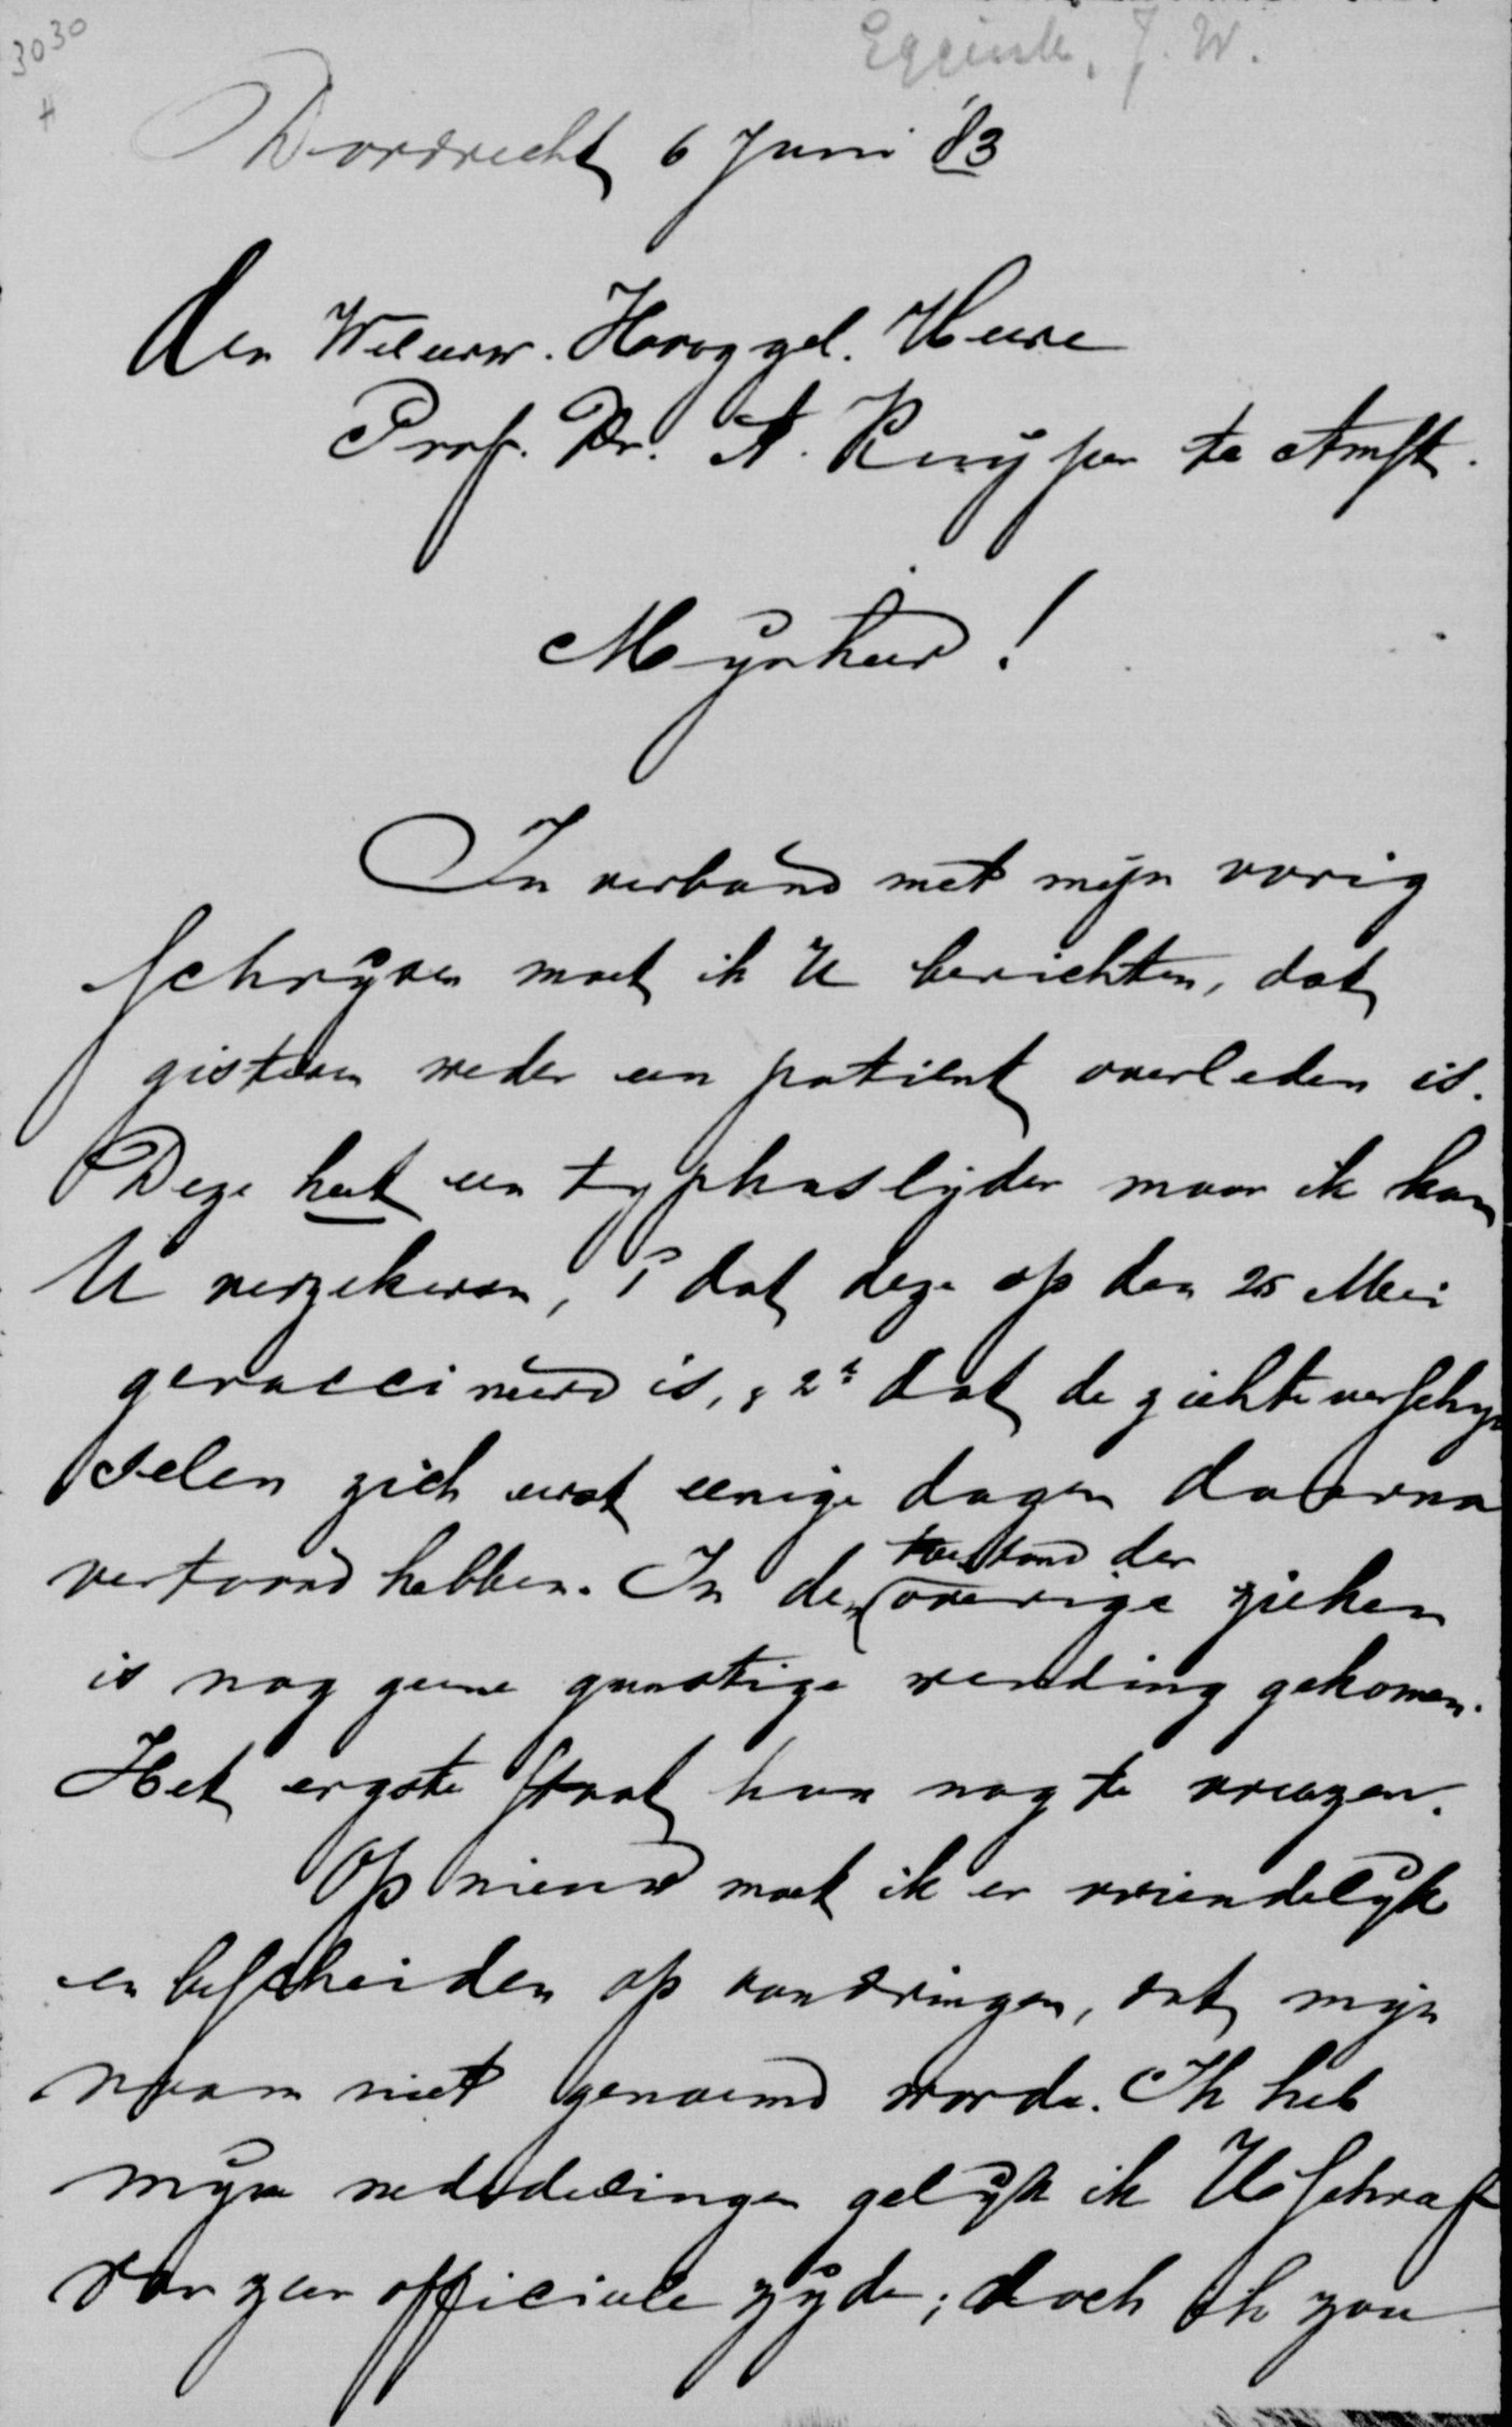 3030
Eggink, J. W.
Dordrecht 6 Juni '83
Den Weleerw. Hooggel. Heere
Prof. Dr. A. Kuyper te Amst.
Mijnheer!
In verband met mijn vorig
schrijven moet ik U berichten, dat
gisteren weder een patient overleden is.
Deze heet een typhuslijder maar ik kan
U verzekeren, 1° dat deze op den 25 Mei
gevaccineerd is, & 2° dat de ziekteverschijn
selen zich eerst eenige dagen daarna
vertoond hebben. In den toestand der overige zieken
is nog geene gunstige wending gekomen.
Het ergste staat hun nog te vreezen.
Op nieuw moet ik er vriendelijk
en bescheiden op aandringen, dat mijn
naam niet genoemd worde. Ik heb
mijne mededeelingen gelijk ik U schreef
van zeer officieele zijde; doch ik zou